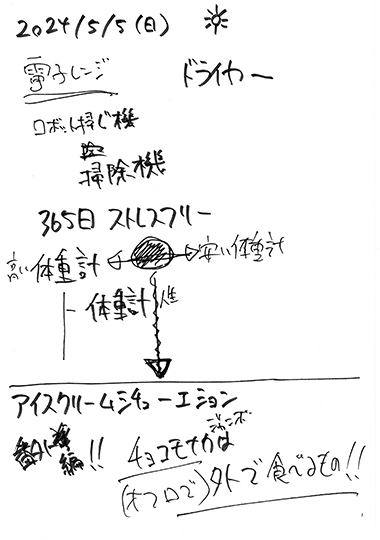 2024/5/5(日)
電子レンジ ドライヤー
ロボット掃じ機
掃除機
365日 ストレスフリー
高い体重計 安い体重計
体重計 人生
アイスクリームシチュエーション
番外編!! チョコモナカ ジャンボは
(オフロで)外で食べるもの!!